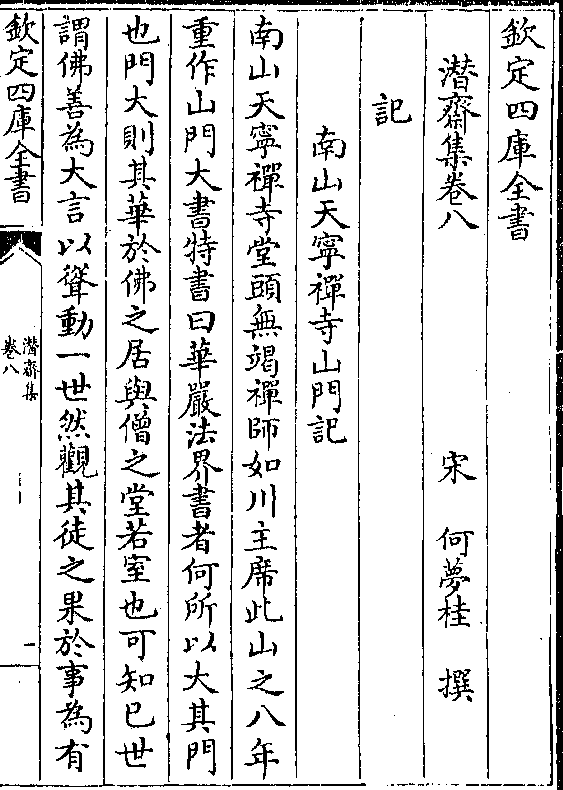 欽定四庫全書
潛齋集卷八
宋 何夢桂 撰
記
南山天寧禪寺山門記
南山天寧禪寺堂頭無竭禪師如川主席此山之八年
重作山門大書特書曰華嚴法界書者何所以大其門
也門大則其華於佛之居與僧之堂若室也可知已世
謂佛善為大言以聳動一世然觀其徒之果於事為有
欽定四庫全書
潛齋集
卷八
一